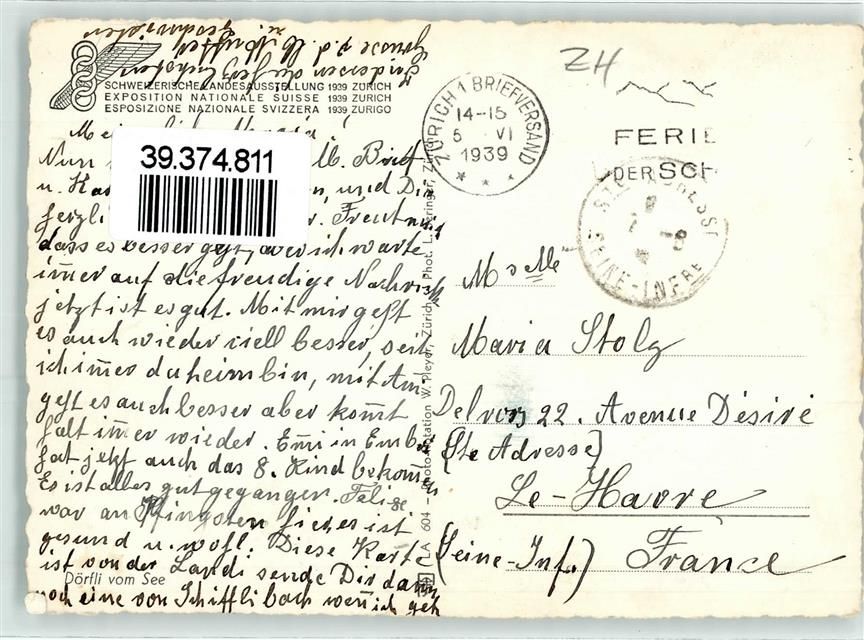 Indessen die herzlichsten
Grüsse z. d. lb Mutter
u. Geschwister
SCHWEIZERISCHE LANDESAUSSTELLUNG 1939 ZÜRICH
EXPOSITION NATIONALE SUISSE 1939 ZURICH
ESPOSIZIONE NAZIONALE SVIZZERA 1939 ZURIGO
39.374.811
Nun lb. Brief
u. und Dir
herzli
dass es besser geht, aber ich warte
immer auf die freudige Nachricht
jetzt ist es gut. Mit mir geht
es auch wieder viell besser, seit
ich immer daheim bin, mit
geht es auch besser aber kommt
halt immer wieder. Emi in
hat jetzt auch das 8. Kind bekommen
Es ist alles gut gegangen.
war an Pfingsten hier es ist
gesund u. wohl. Diese Karte
ist von der Landi sende Dir dann
noch eine von Schifflibach wenn ich geh
Dörfli vom See
LA 604 Photo-Notation W. Pleyer, Zürich Phot. L. Beringer, Zürich
ZH
ZÜRICH 1 BRIEFVERSAND
14-15
5 VI
1939
FERIE
DER SCH
STE ADRESSE
SEINE-INFRE
Melle
Maria Stolz
Delvos 22. Avenue Désiré
(Ste Adresse)
Le-Havre
(Seine-Inf.) France